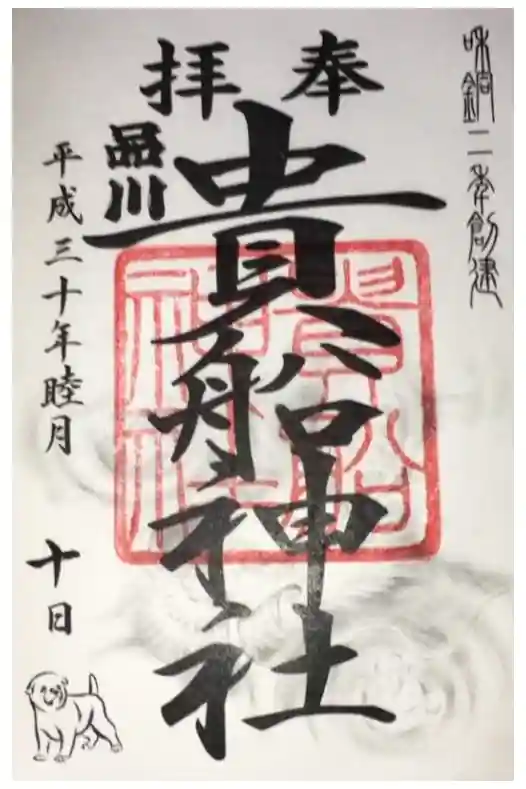 和銅二年創建
奉拝
品川
貴船神社
貴船神社
平成三十年睦月
十日